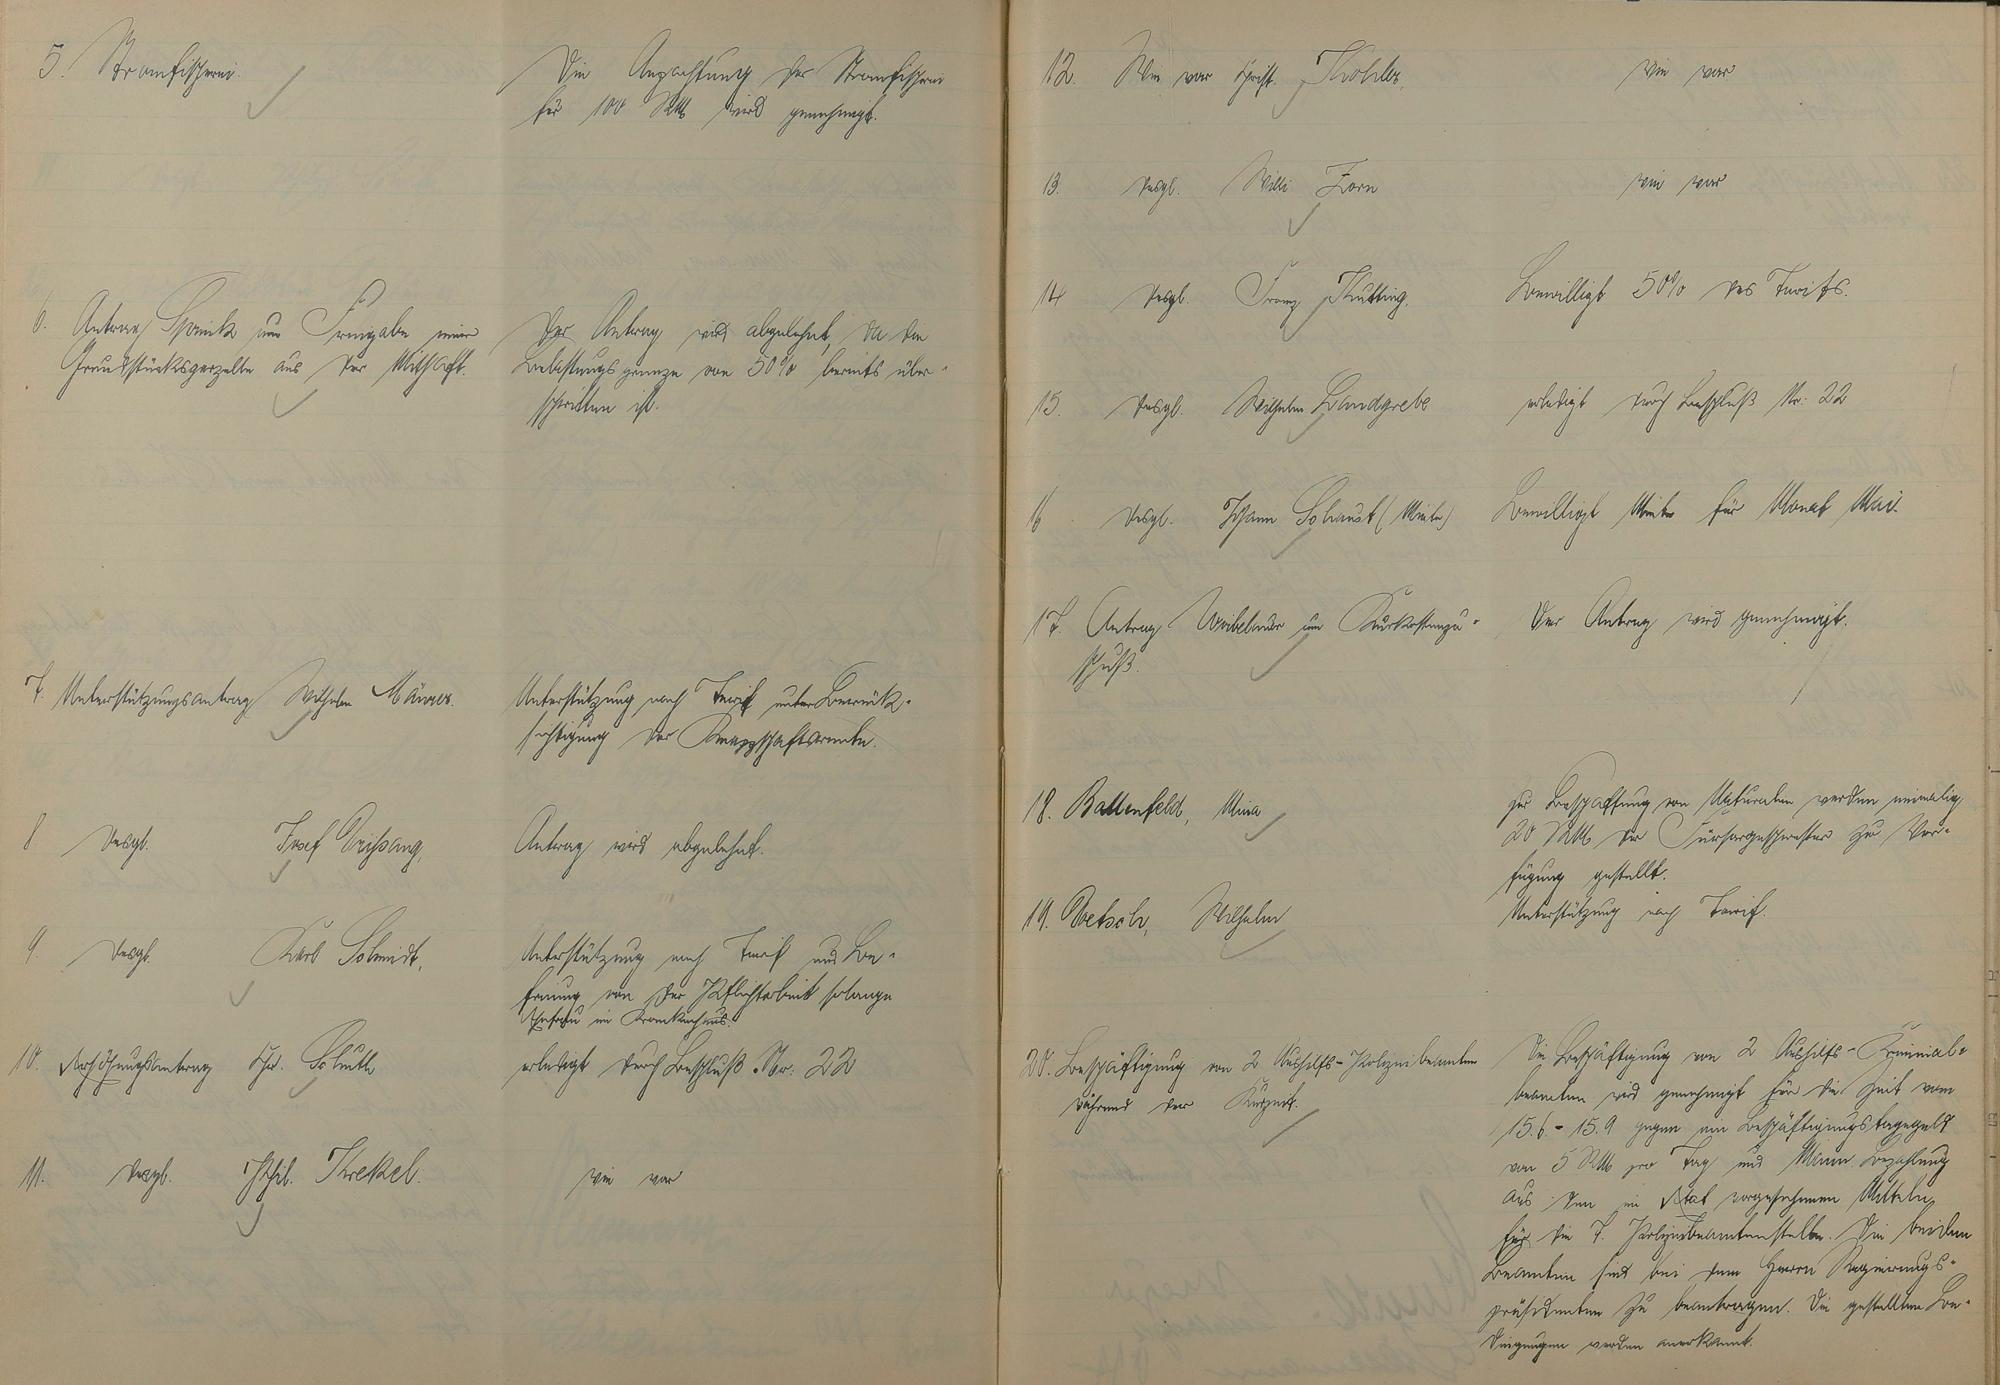 5. Stromfischerei.
Die Anpachtung der Stromfischerei
für 100 RM wird genehmigt.
6. Antrag um Freigabe einer
Grundstücksparzelle aus der Mithaft.
Der Antrag wird abgelehnt, da die
Belastungsgrenze von 50% bereits über-
schritten ist.
7. Unterstützungsantrag Wilhelm Männer.
Unterstützung nach Tarif unter Berück-
sichtigung der Knappschaftsrente.
8 Desgl. Josef
Antrag wird abgelehnt.
9. Desgl. Karl Schmidt,
Unterstützung nach Tarif und Be-
freiung von der Pflichtarbeit solange
Ehefrau im Krankenhaus.
10. Erhöhungsantrag Chr.
erledigt durch Beschluß Nr. 22
11. Desgl. Phil. Krekel.
wie vor
12. Wie vor Christ. Köhler,
wie vor
13. Desgl. Willi Zorn
wie vor
14 Desgl. Franz Kutting,
Bewilligt 50% des Tarifs.
15. Desgl. Wilhelm Landgrebe
erledigt durch Beschluß Nr. 22
16 Desgl. Johann Schaust (Miete)
Bewilligt Miete für Monat Mai.
17. Antrag um Kurkostenzu-
schuß.
Der Antrag wird genehmigt.
18. Battenfeld, Mina
Zur Beschaffung von Naturalien werden einmalig
20 RM der Fürsorgeschwester zu Ver-
fügung gestellt.
19. Wilhelm
Unterstützung nach Tarif.
20. Beschäftigung von 2 Aushilfs-Polizeibeamten
während der Kurzeit.
Die Beschäftigung von 2 Aushilfs-Kriminal-
beamten wird genehmigt für die Zeit vom
15.6. - 15.9 gegen ein Beschäftigungstagegeld
von 5 RM pro Tag und Mann. Bezahlung
aus den im Etat vorgesehenen Mitteln
für die 7. Polizeibeamtenstelle. Die beiden
Beamten sind bei dem Herrn Regierungs-
präsidenten zu beantragen. Die gestellten Be-
dingungen werden anerkannt.